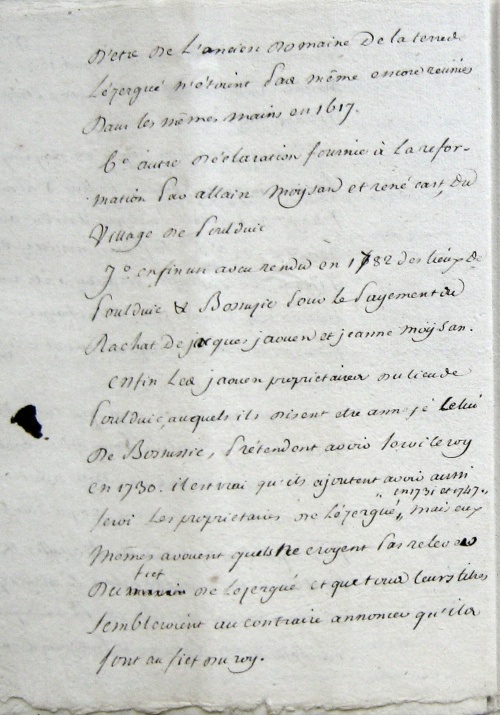 d'etre de l'ancien domaine de la terre de
Lézergué n'étoient pas même encore reunies
dans les mêmes mains en 1617.
6° autre déclaration fournie à la refor-
mation par allain moysan et rené cart, du
village de poulduic
7° enfin un aveu rendu en 1782 des lieux de
poulduic & Bossusic pour le payement du
Rachat de jacques jaouen et jeanne moysan.
enfin les jaouen proprietaires du lieu de
poulduic, auquels ils disent etre annexé celui
de Bossusic, prétendent avoir servi le roy
en 1730. il est vrai qu'ils ajoutent avoir aussi
servi les proprietaires de lézergué „ en 1731 et 1747 „ mais eux
mêmes avouent qu'els ne croyent pas relever
du fief de lézergué et que tous leurs titres
sembleroient au contraire annoncer qu'ils
sont au fief du roy.